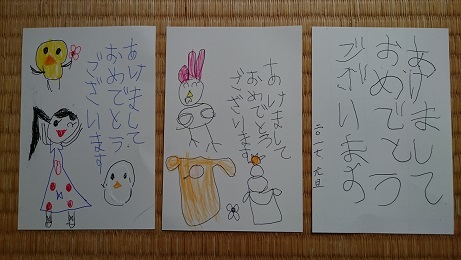 あけまして
おめでとう
ございます
あけまして
おめでとう
ございます
あけまして
おめでとう
ございます
二〇一七 元旦